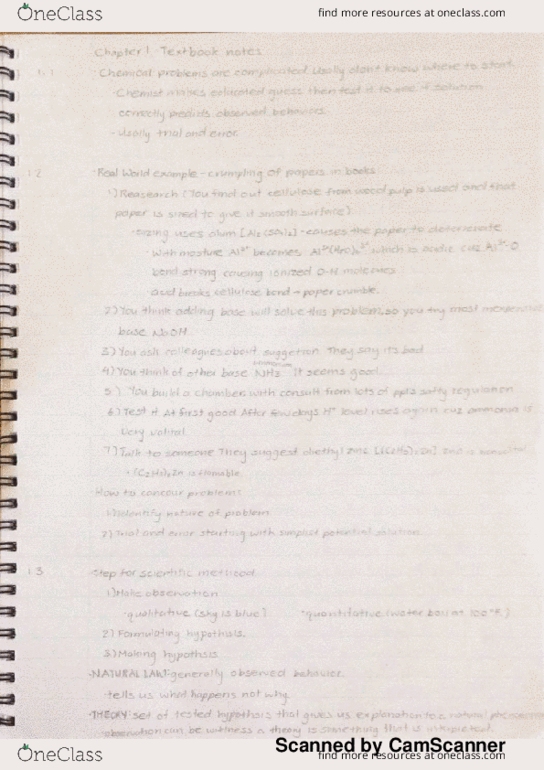 OneClass
find more resources at oneclass.com
Chapter 1 - Textbook notes
1.1 Chemical problems are complicated Usally don't know where to start
Chemist makes educated guess then test it to see if solution
correctly predicts observed behaviors.
- Usally trial and error
1.2 Real World example - crumpling of papers in books
1) Reasearch (You find out cellulose from wood pulp is used and that
paper is sized to give it smooth surface).
sizing uses alum [Al₂(SO₄)₃] - causes the paper to deteriorate
With moisture Al³⁺ becomes Al(H₂O)₆³⁺ which is acidic cuz Al³⁺-O
bond strong causing ionized O-H molecules
acid breaks cellulose bond → paper crumble.
2) You think adding base will solve this problem, so you try most inexpensive
base NaOH.
3) You ask colleagues about suggestion They say its bad
4) You think of other base NH₃. It seems good.
5) You build a chamber with consult from lots of ppl & safty regulation
6) Test it At first good After few days H⁺ level rises again cuz ammonia is
very volital.
7) Talk to someone They suggest diethyl zinc [(C₂H₅)₂Zn]
(C₂H₅)₂Zn is flamable
How to concour problems
1) Identify nature of problem
2) Trial and error starting with simplist potential solution.
1.3 Step for scientific method
1) Make observation
qualitative (sky is blue) quantitative (water boils at 100°F)
2) Formulating hypothsis.
3) Making hypothsis
NATURAL LAW: generally observed behavior.
tells us what happens not why.
THEORY: set of tested hypothsis that gives us explanation to a natural
observation can be witness a theory is something that is
Scanned by CamScanner
OneClass
find more resources at oneclass.com